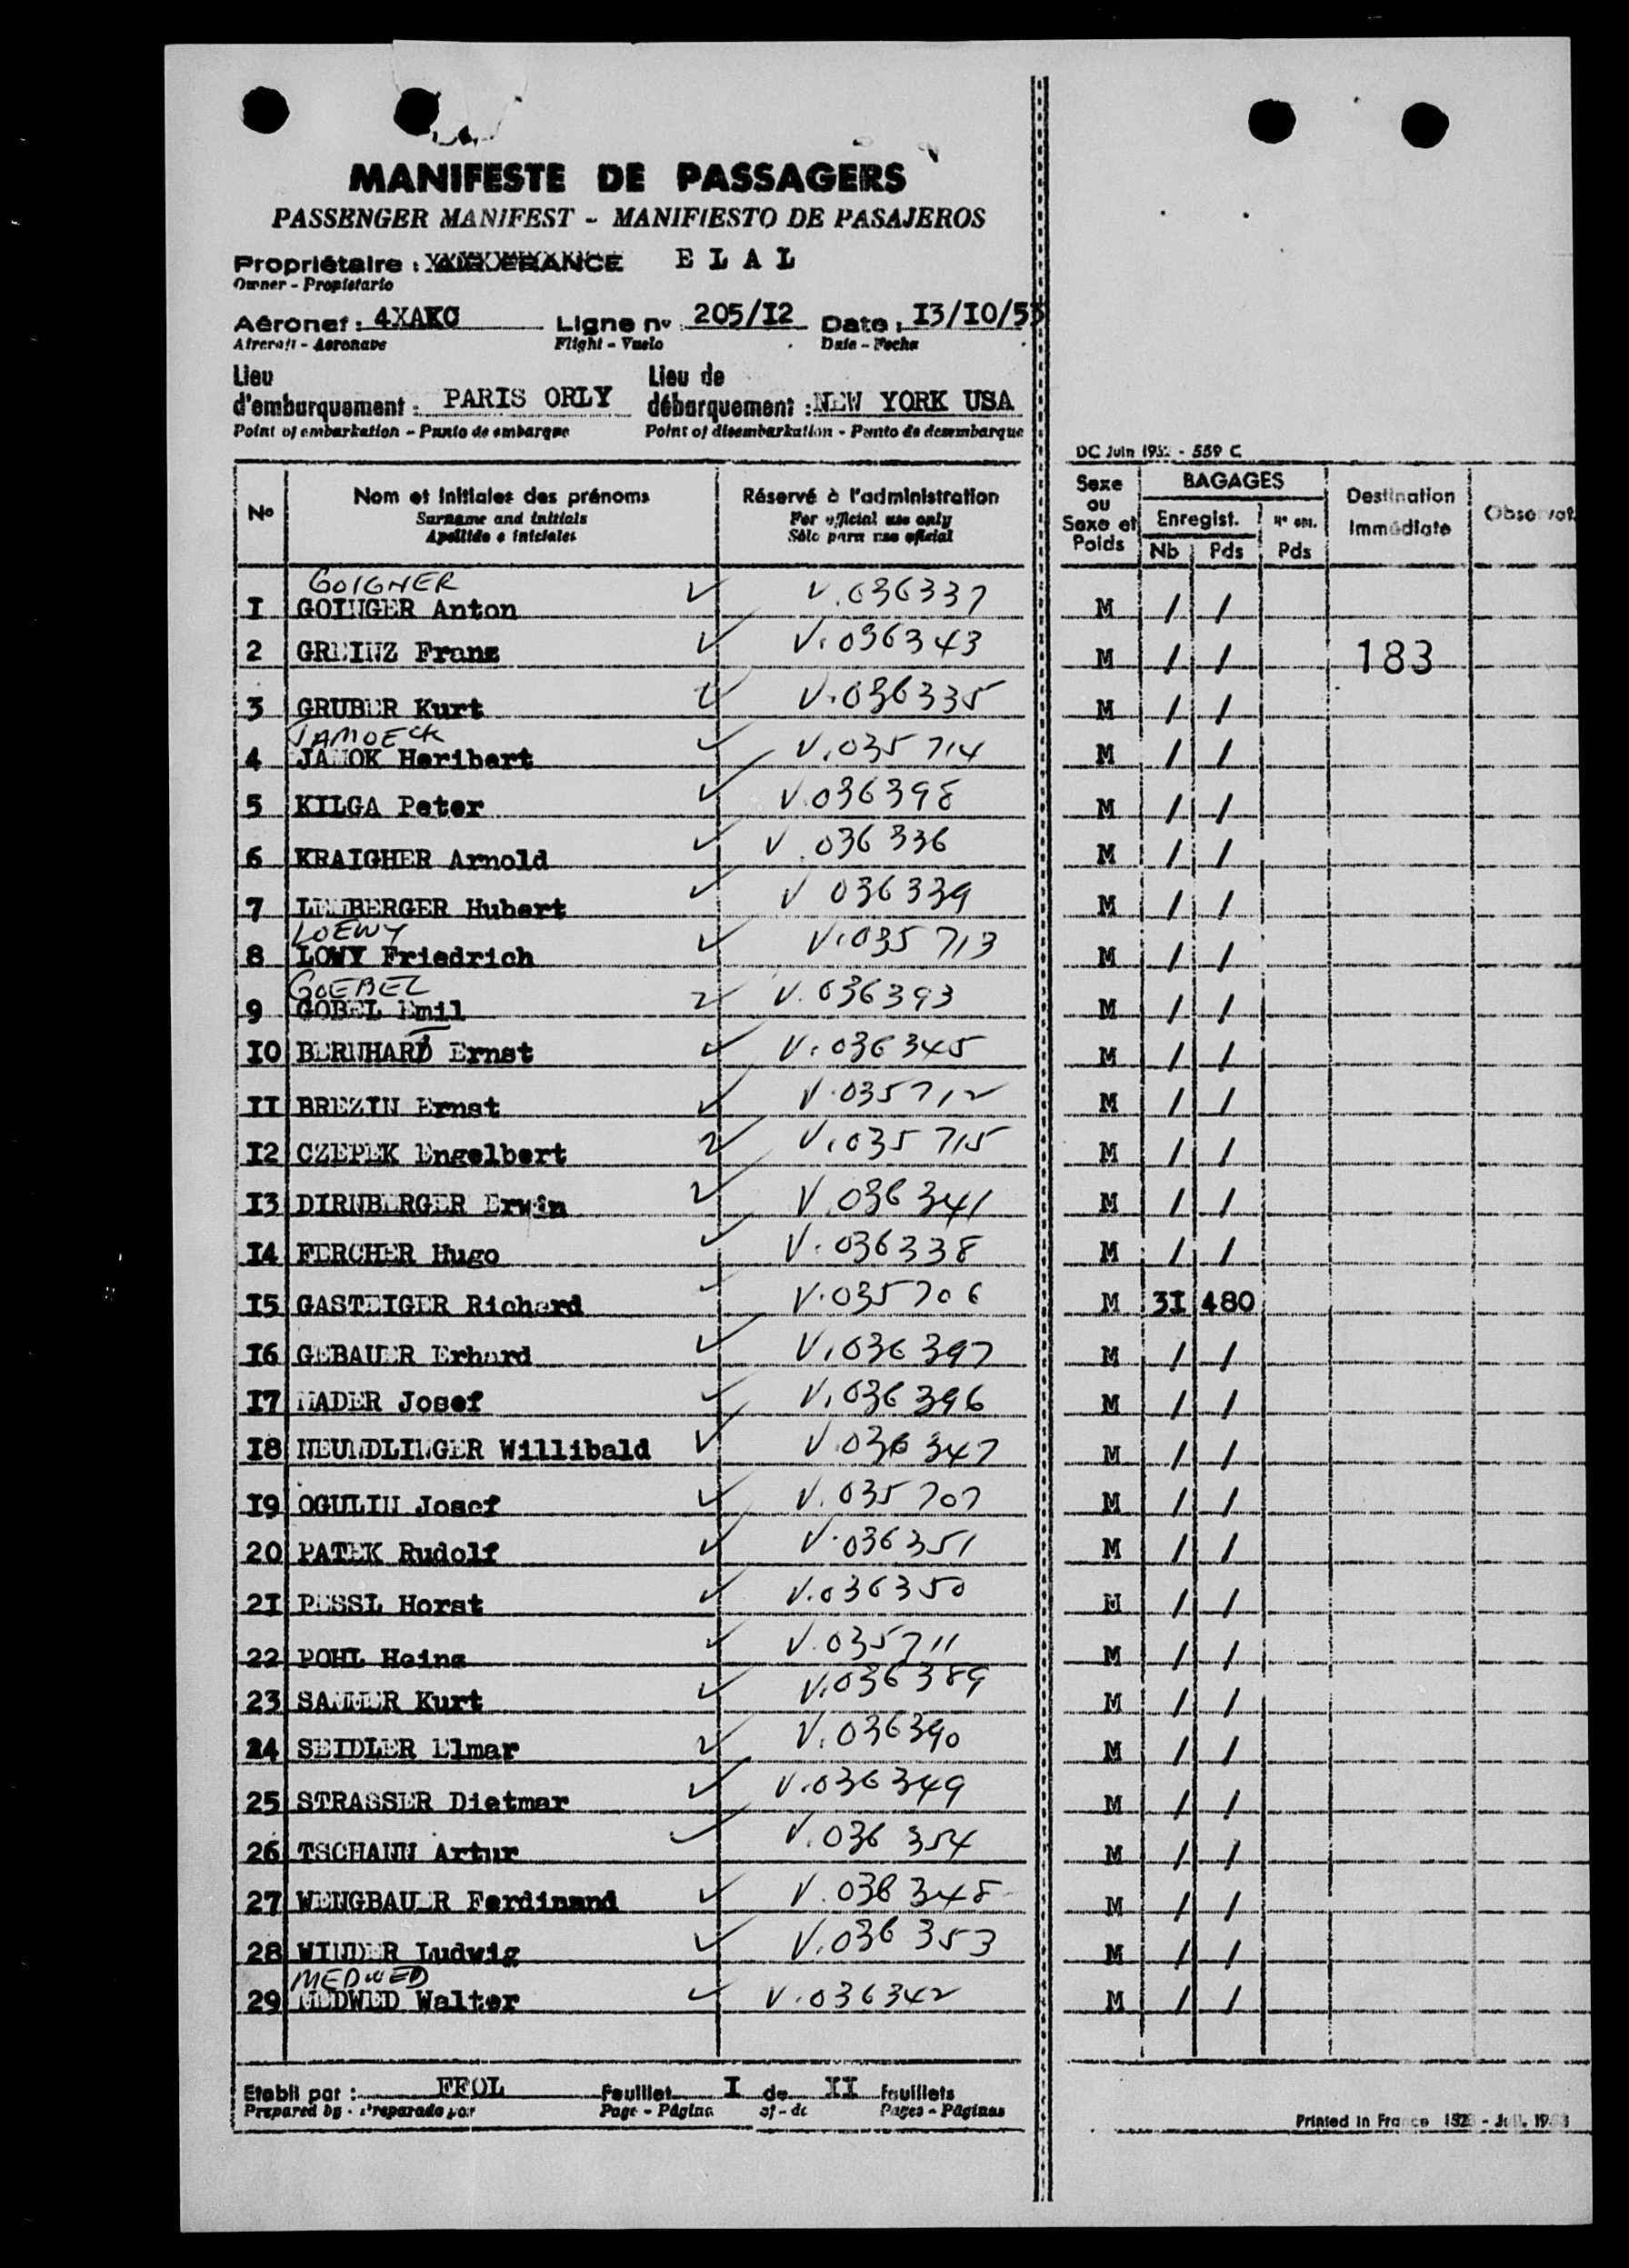 MANIFESTE DE PASSAGERS
PASSENGER MANIFEST - MANIFIESTO DE PASAJEROS
Propriétaire : AIR FRANCE E L A L
Owner - Propietario
Aéronef : 4XAKC Ligne nº 205/I2 Date : I3/I0/53
Aircraft - Aeronave Flight - Vuelo Date - Fecha
Lieu d'embarquement : PARIS ORLY Lieu de débarquement : NEW YORK USA
Point of embarkation - Punto de embarque Point of disembarkation - Punto de desembarque
DC Juin 195 - 559 C
Nº Nom et initiales des prénoms Réservé à l'administration Sexe ou Sexe et Poids BAGAGES Destination Immédiate Observat.
Surname and initials For official use only Enregist. Nº enr.
Apellido e iniciales Sólo para uso oficial Nb Pds Pds
GOIGNER
I GOINGER Anton V.036337 M / /
2 GREINZ Franz V.036343 M / / 183
3 GRUBER Kurt V.036335 M / /
JAMOECK
4 JAMOK Heribert V.035714 M / /
5 KILGA Peter V.036398 M / /
6 KRAIGHER Arnold V.036336 M / /
7 LIMBERGER Hubert V 036339 M / /
LOEWY
8 LOWY Friedrich V.035713 M / /
GOEBEL
9 GOBEL Emil V.036393 M / /
I0 BERNHARD Ernst V.036345 M / /
II BREZIN Ernst V.035712 M / /
I2 CZEPEK Engelbert V.035715 M / /
I3 DIRNBERGER Erwin V.036341 M / /
I4 FERCHER Hugo V.036338 M / /
I5 GASTEIGER Richard V.035706 M 3I 480
I6 GEBAUER Erhard V.036397 M / /
I7 MADER Josef V.036396 M / /
I8 NEUNDLINGER Willibald V.036347 M / /
I9 OGULIN Josef V.035707 M / /
20 PATEK Rudolf V.036351 M / /
2I PESSL Horst V.036350 M / /
22 POHL Heinz V.035711 M / /
23 SAMMER Kurt V.036389 M / /
24 SEIDLER Elmar V.036390 M / /
25 STRASSER Dietmar V.036349 M / /
26 TSCHANN Artur V.036354 M / /
27 WENGBAUER Ferdinand V.036348 M / /
28 WINDER Ludwig V.036353 M / /
MEDWED
29 MEDWED Walter V.036342 M / /
Etabli par : FFOL Feuillet I de II feuillets
Prepared by - Preparado por Page - Página of - de Pages - Páginas
Printed in France